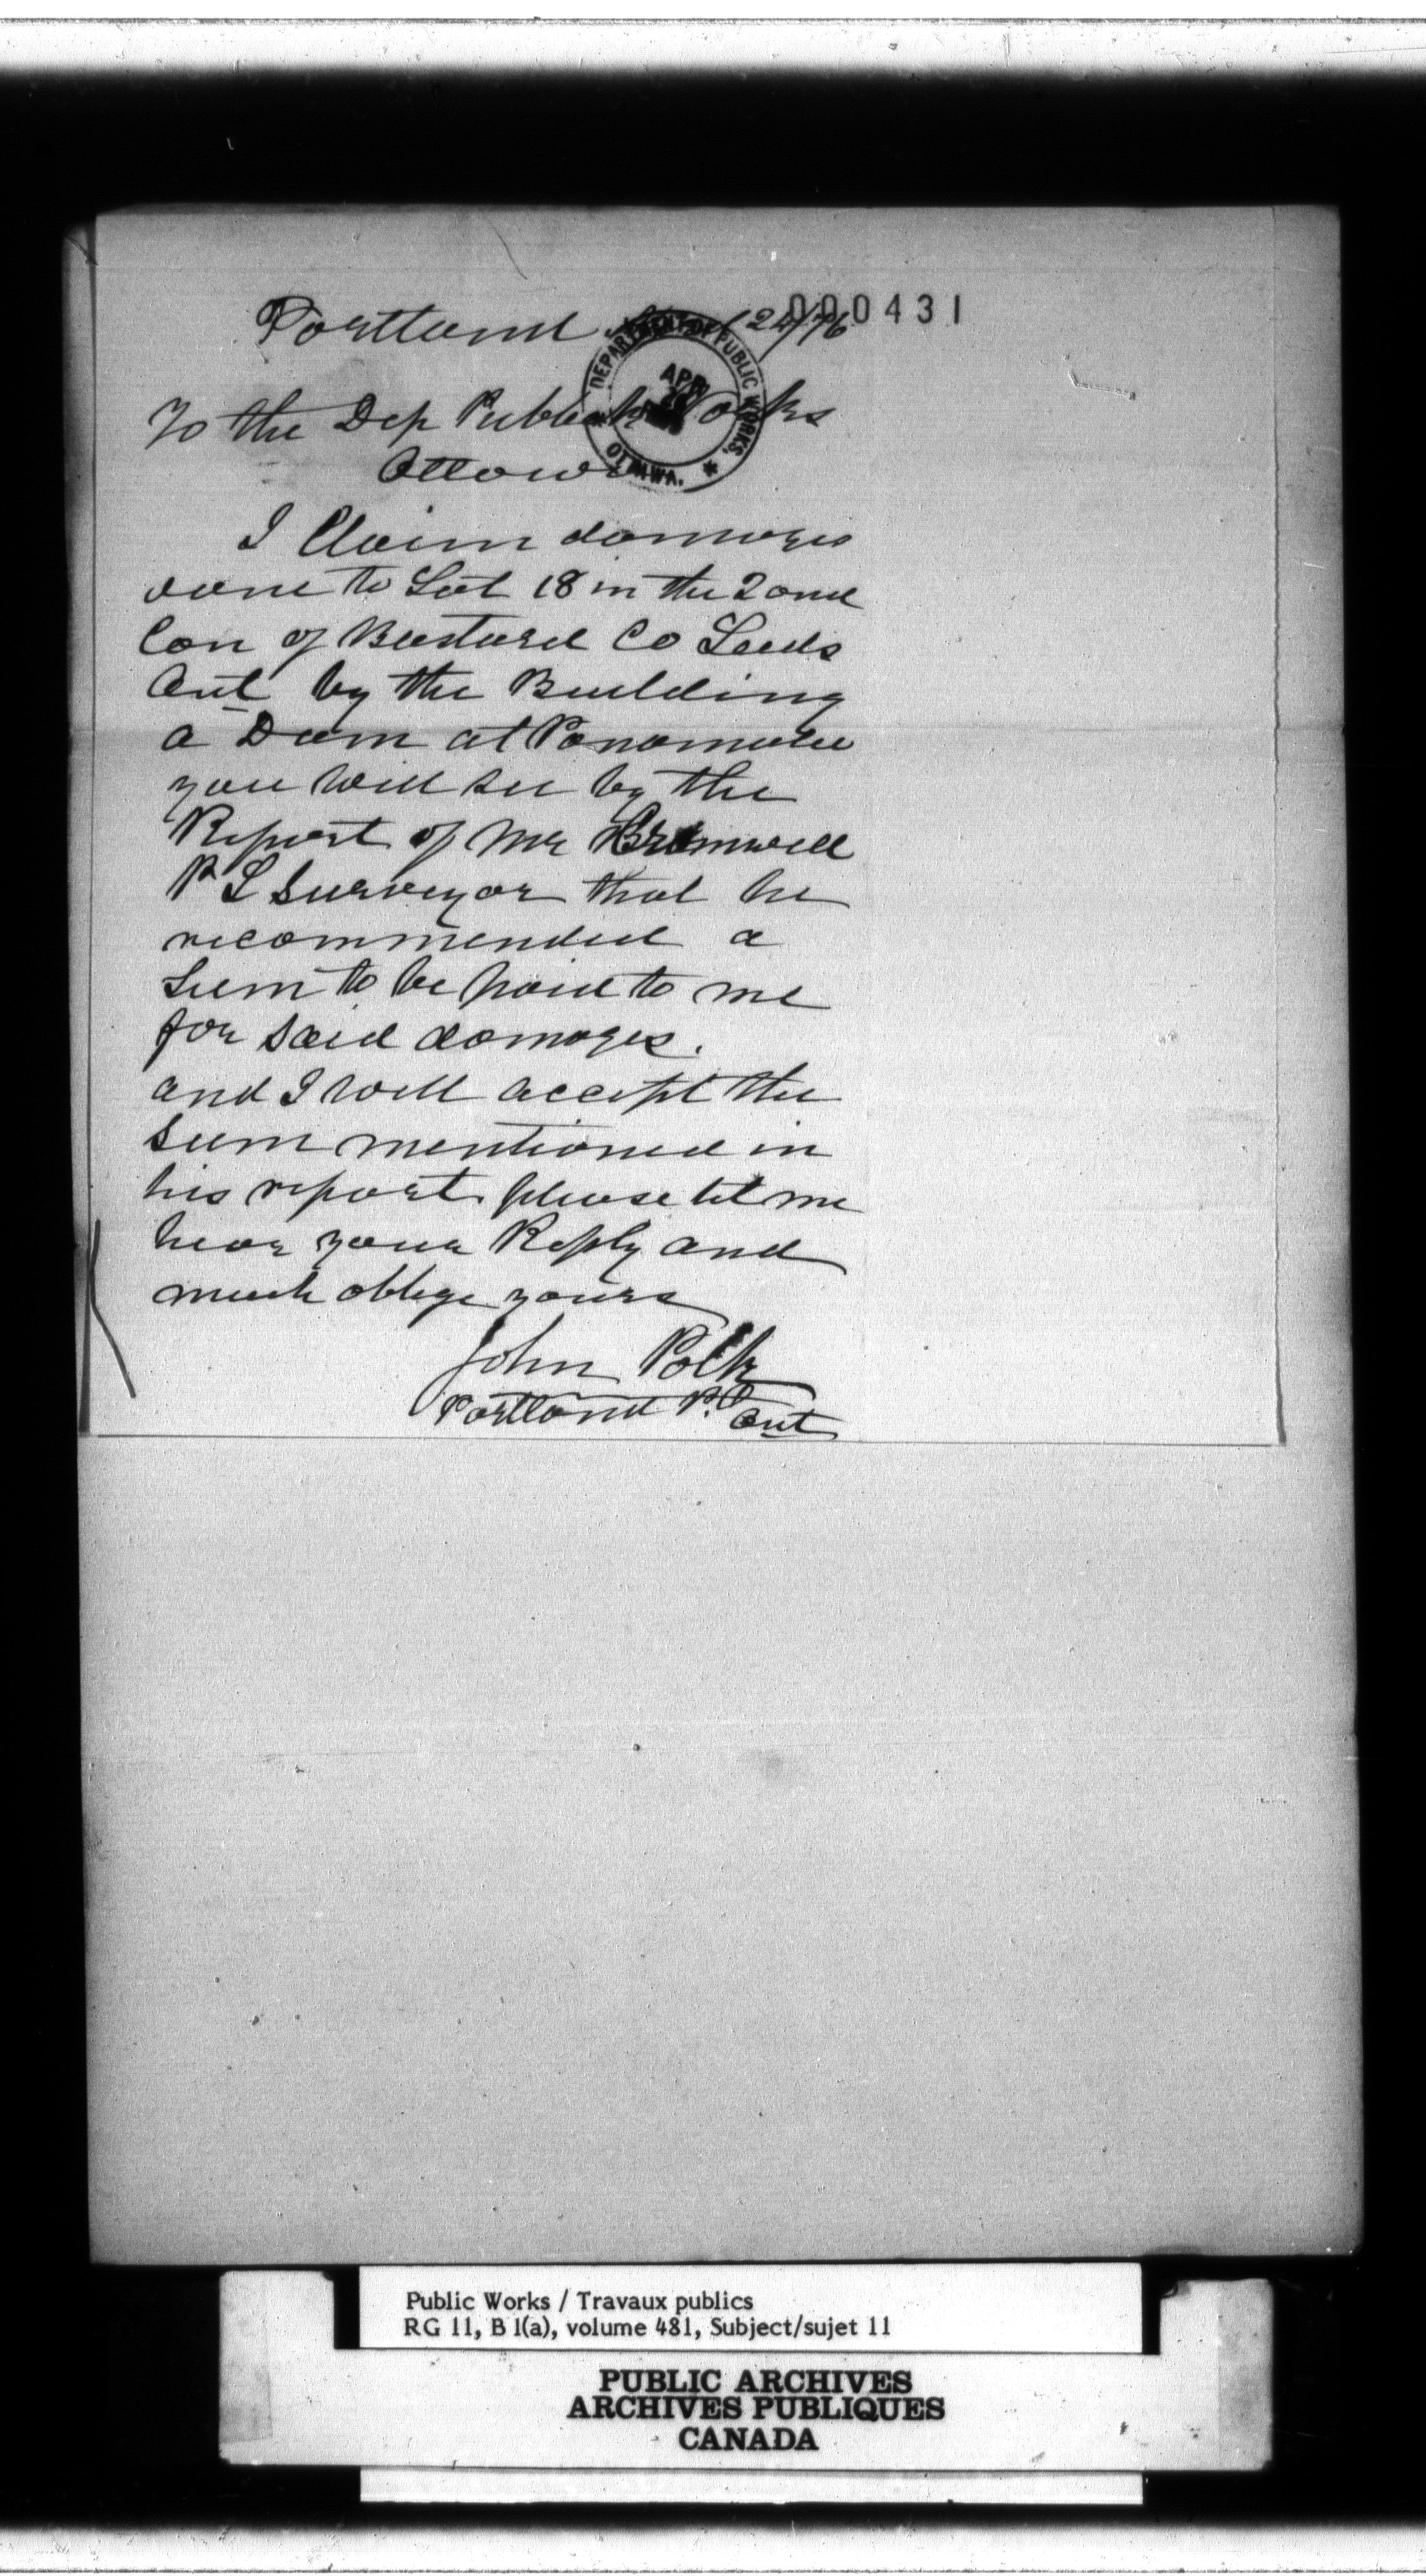 000431
Portland 24/76
DEPARTMENT OF PUBLIC WORKS,
APR
OTTAWA.
To the Dep Publick Works
Ottowa
I Claim damages
done to Lot 18 in the 2ond
Con of Bastard Co Leeds
Ont by the Building
a Dam at Ponamalie
you will see by the
Report of Mr
P L Surveyor that he
recommended a
sum to be paid to me
for said damages.
and I will accept the
sum mentioned in
his report please let me
hear your Reply and
much oblige yours
John Polk
Portland P.O Ont
Public Works / Travaux publics
RG 11, B 1(a), volume 481, Subject/sujet 11
PUBLIC ARCHIVES
ARCHIVES PUBLIQUES
CANADA